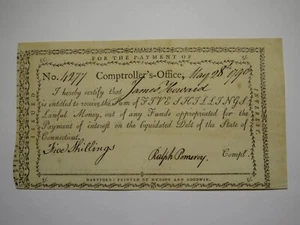 FOR THE PAYMENT OF
No. 4277 Comptroller's-Office, May 28 1790
I hereby certify that James
is entitled to receive the Sum of FIVE SHILLINGS
Lawful Money, out of any Funds appropriated for the
Payment of interest on the liquidated Debt of the State of
Connecticut.
Five Shillings
Ralph Pomeroy Compt.
HARTFORD: PRINTED BY HUDSON AND GOODWIN.